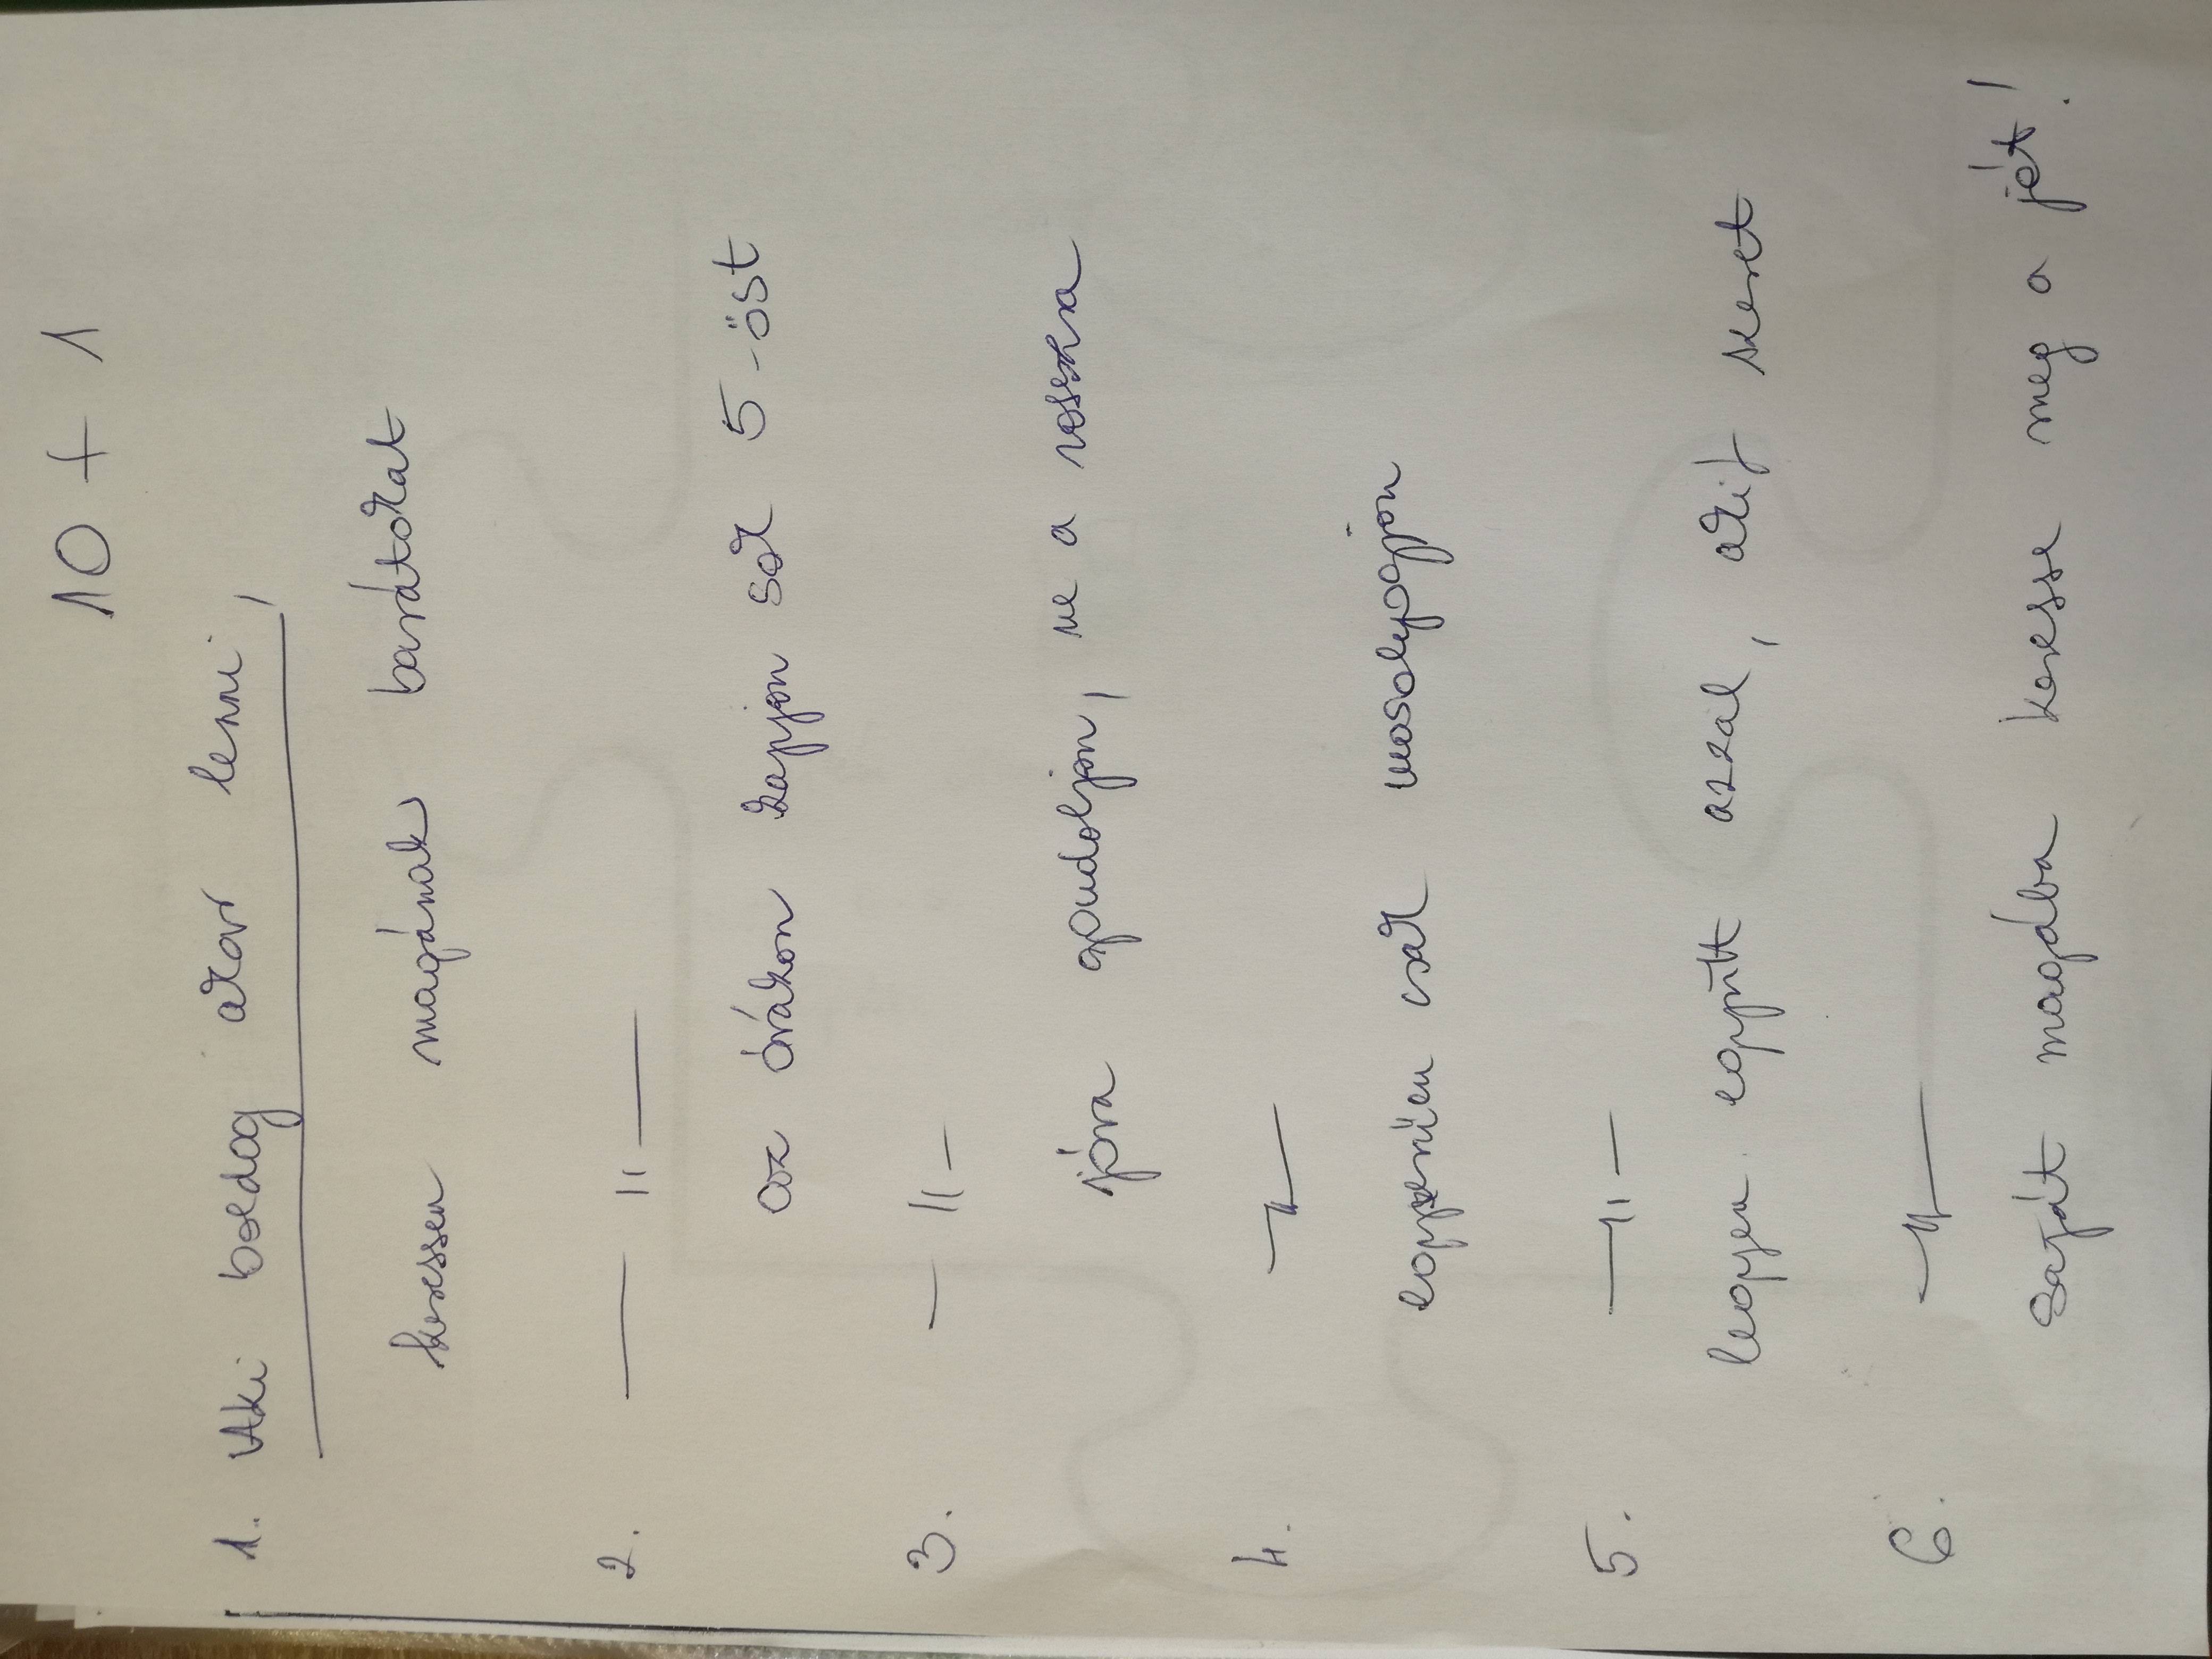 10 + 1
1. Aki boldog akar lenni,
keressen magának barátokat
2. — " —
az órákon kapjon sok 5-öst
3. — " —
jóra gondoljon, ne a rosszra
4. — " —
egyszerűen csak mosolyogjon
5. — " —
legyen együtt azzal, akit szeret
6. — " —
Saját magába keresse meg a jót!